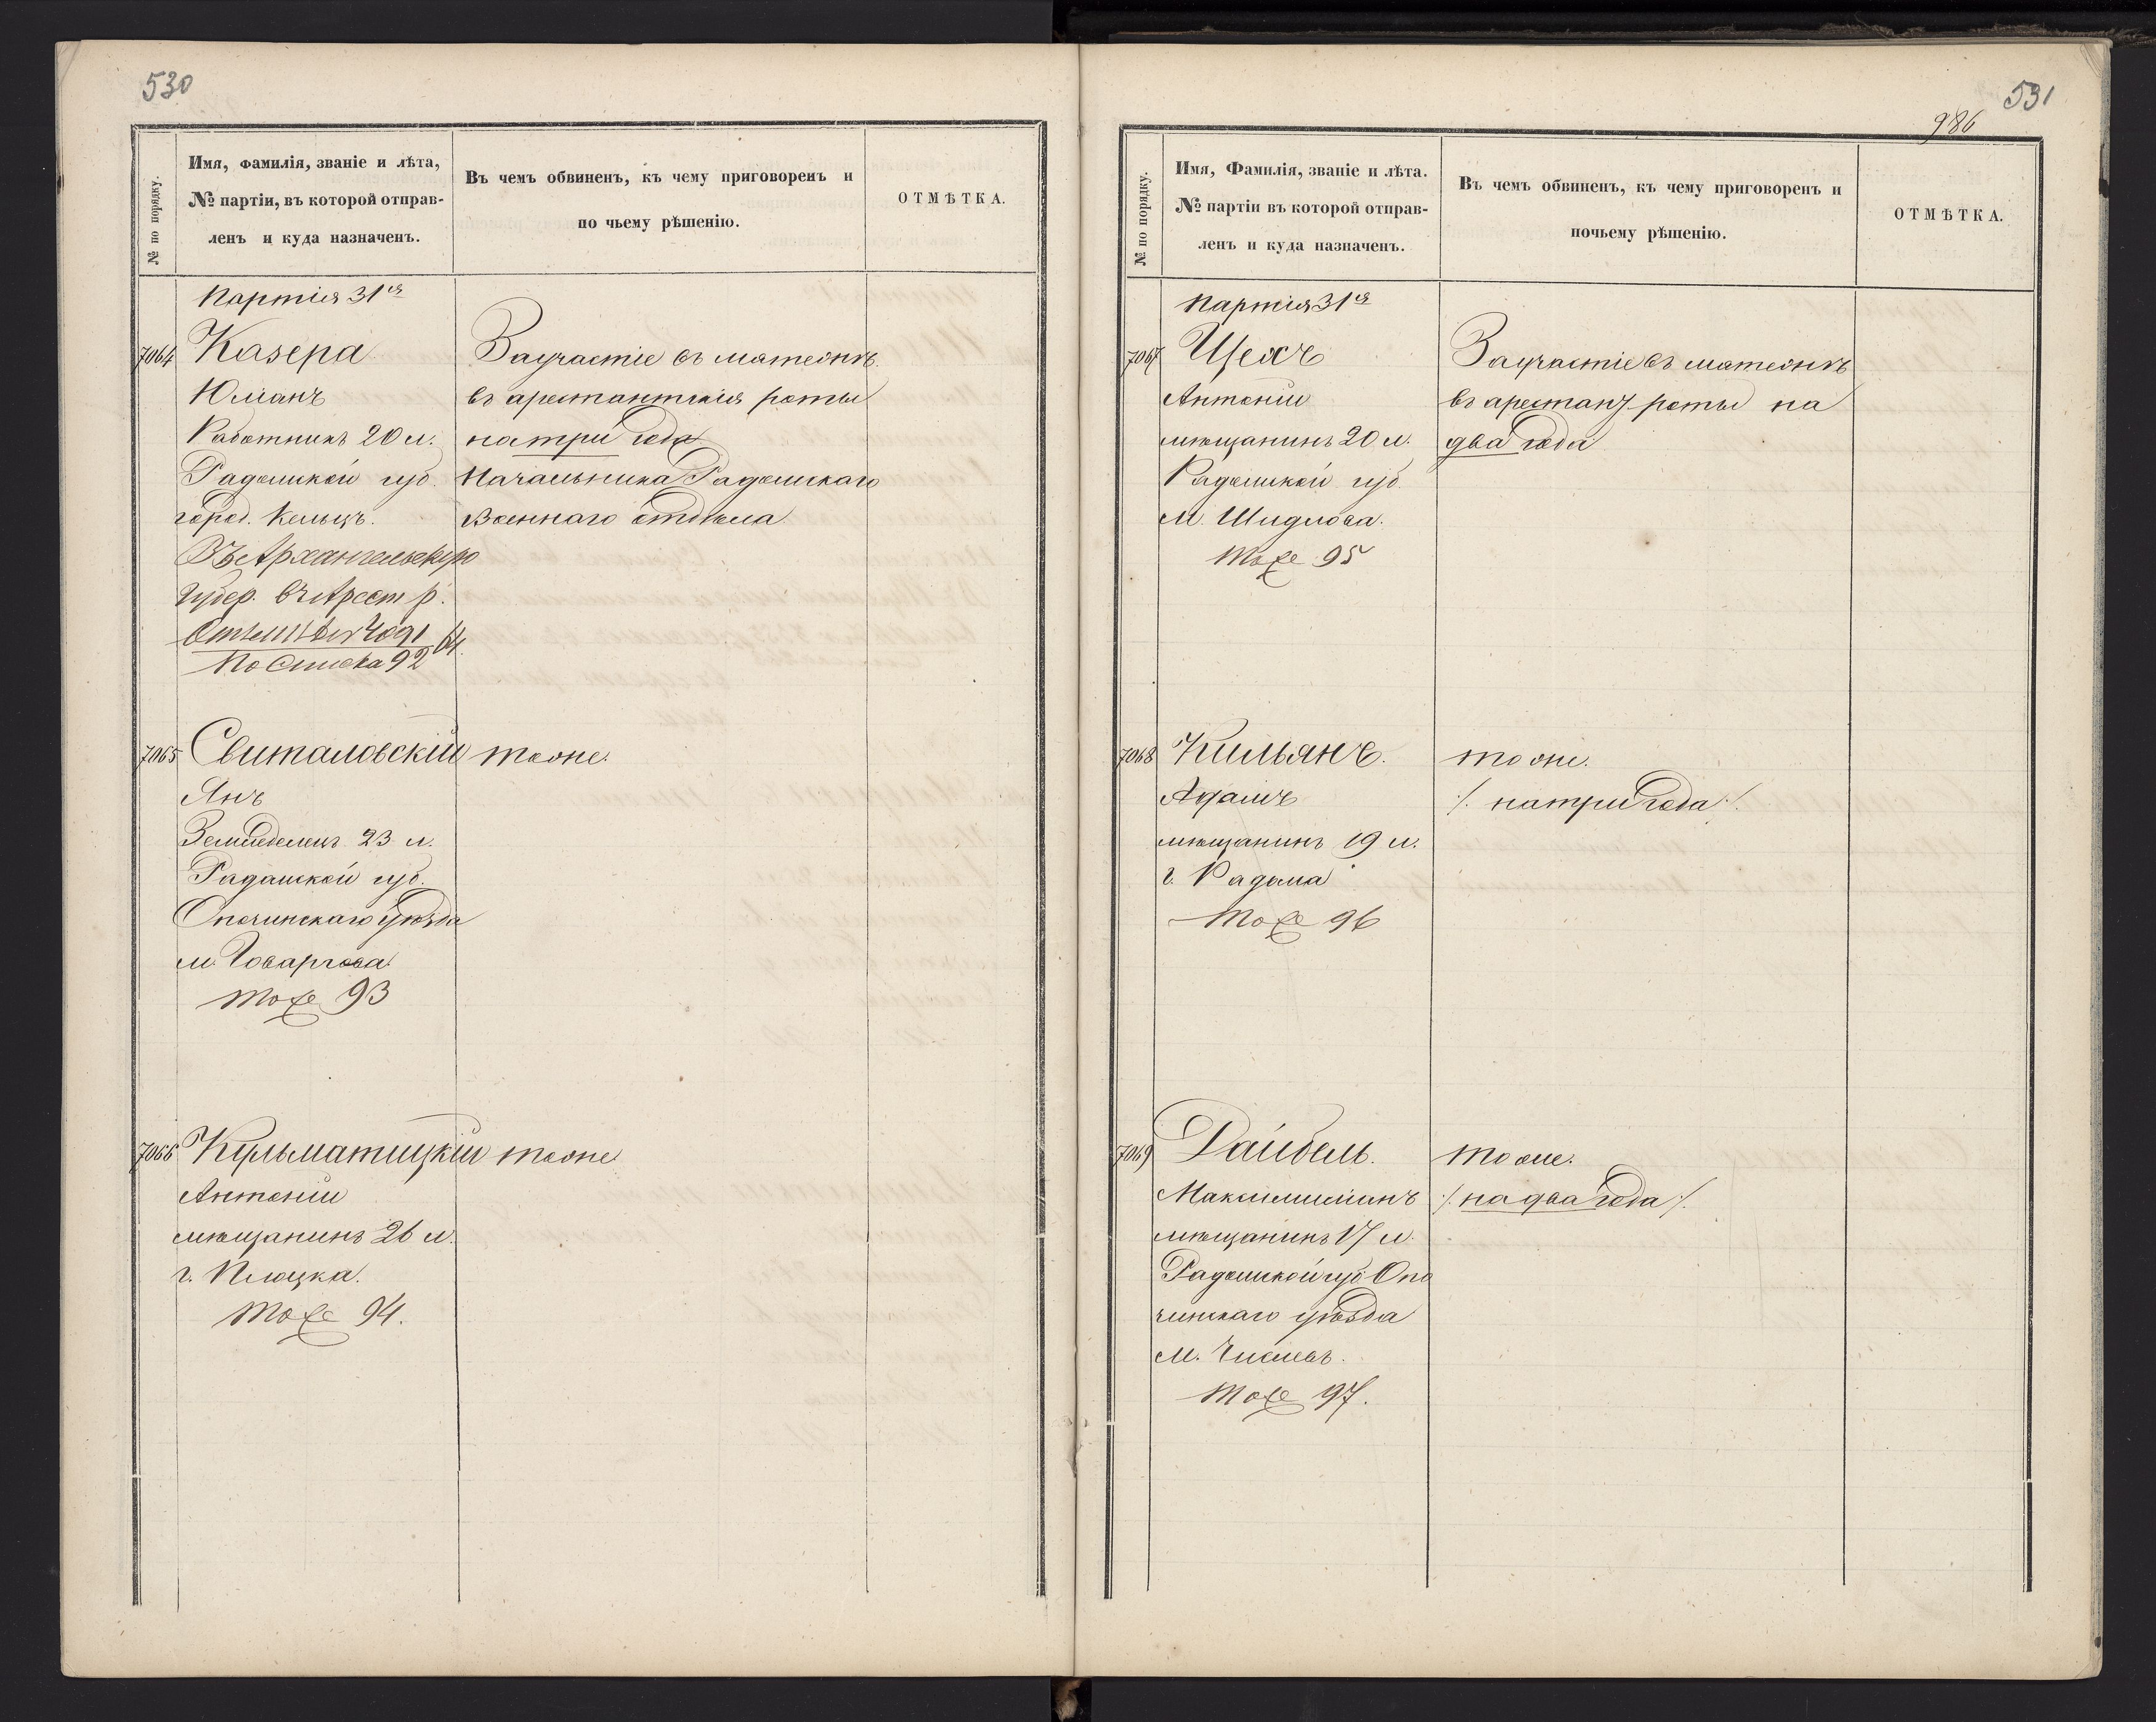 530
№ по порядку.
Имя, фамилія, званіе и лѣта,
№ партіи, въ которой отправ-
ленъ и куда назначенъ.
Въ чемъ обвиненъ, къ чему приговоренъ и
по чьему рѣшенію.
ОТМѢТКА.
Партія 31я
7064
Казера
Юліанъ
Работникъ 20 л.
Радомской губ.
город. Кельцъ.
Въ Архангельскую
Губер. въ Арест р.
По Списка 92
За участіе въ мятежѣ
въ арестантскія роты
на три года
Начальника Радомскаго
Военнаго отдѣла
7065
Свиталовскій
Янъ
Земледелецъ 23 л.
Радомской губ.
Опочинскаго уѣзда
м. Говарчова
Тоже 93
тоже.
7066
Кульматицкій
Антоній
мѣщанинъ 26 л.
г. Плоцка.
Тоже 94.
тоже
531
986
№ по порядку.
Имя, Фамилія, званіе и лѣта.
№ партіи въ которой отправ-
ленъ и куда назначенъ.
Въ чемъ обвиненъ, къ чему приговоренъ и
почьему рѣшенію.
ОТМѢТКА.
Партія 31я
7067
Цехъ
Антоній
мѣщанинъ 20 л.
Радомской губ
м. Шидлова.
Тоже 95
За участіе въ мятежѣ
въ арестант роты на
два года
7068
Кильянъ.
Адамъ
мѣщанинъ 19 л.
г. Радома
Тоже 96
тоже.
/. на три года ./.
7069
Дайбель.
Максимиліанъ
мѣщанинъ 17 л.
Радомской губ Опо
чинскаго уѣзда
м.
Тоже 97.
тоже.
/. на два года /.